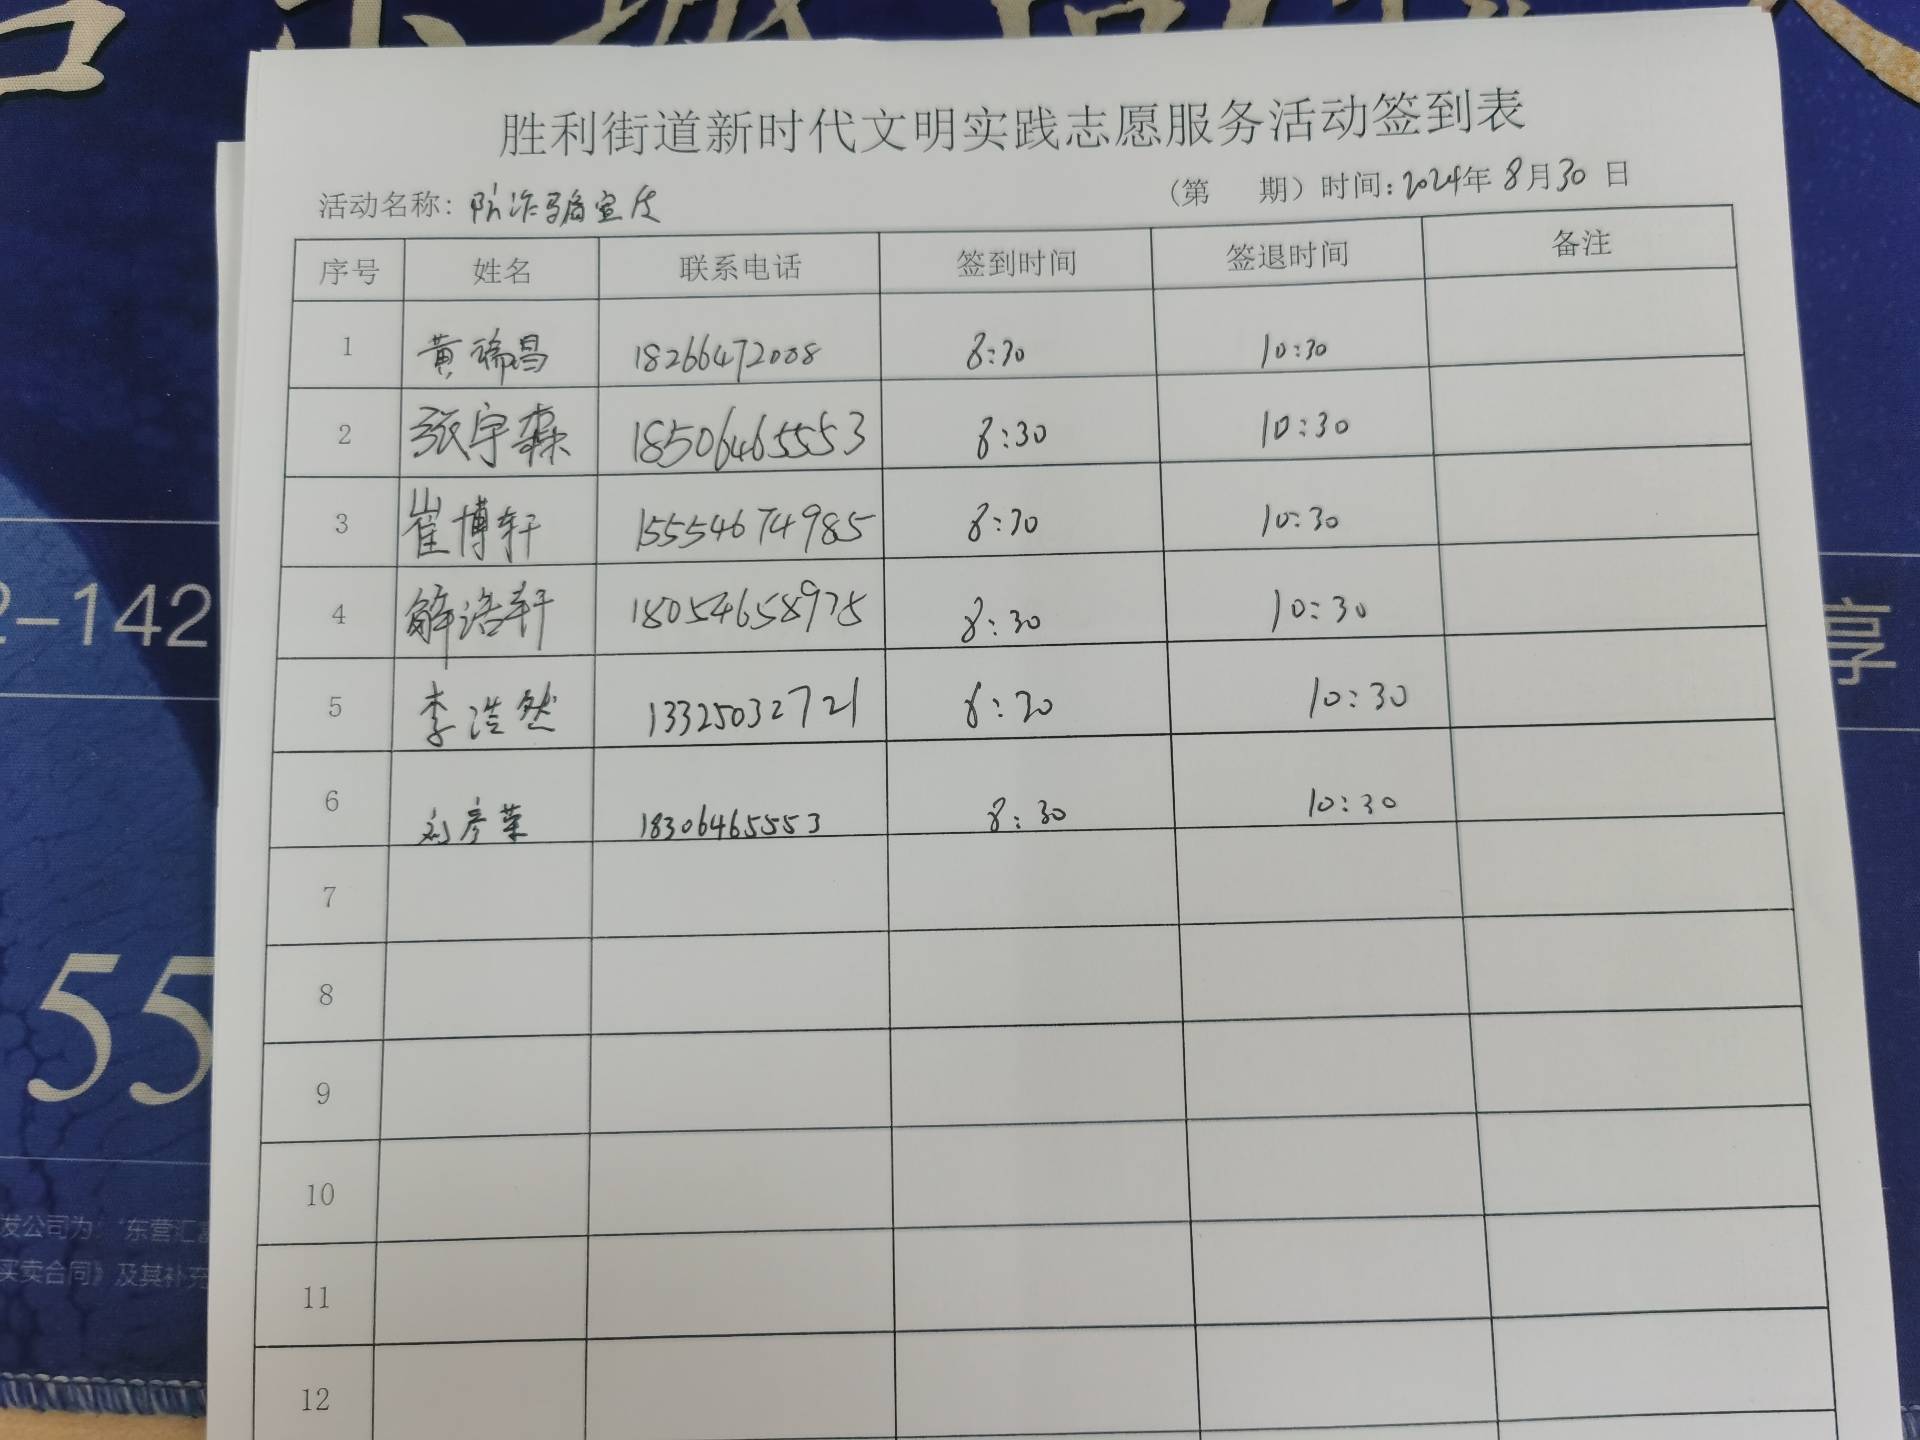 胜利街道新时代文明实践志愿服务活动签到表
活动名称：防诈骗宣传 （第 期）时间：2024年8月30日
序号 姓名 联系电话 签到时间 签退时间 备注
1 黄瑞昌 18266472008 8:30 10:30
2 张宇森 18506465553 8:30 10:30
3 崔博轩 15554674985 8:30 10:30
4 解浩轩 18054658975 8:30 10:30
5 李浩然 13325032721 8:30 10:30
6 刘彦荣 18306465553 8:30 10:30
7
8
9
10
11
12
2-142
享
55
发公司为：“东营汇富
买卖合同》及其补充